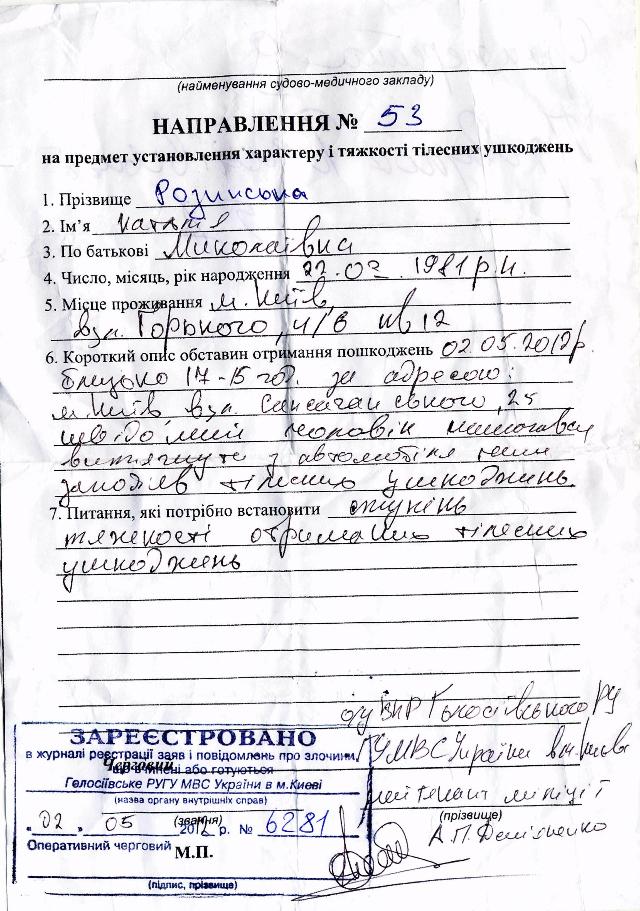 (найменування судово-медичного закладу)
НАПРАВЛЕННЯ № 53
на предмет установлення характеру і тяжкості тілесних ушкоджень
1. Прізвище Розинська
2. Ім'я Наталія
3. По батькові Миколаївна
4. Число, місяць, рік народження 22.02.1981 р.н.
5. Місце проживання м. Київ,
вул. Горького, 4/6 кв 12
6. Короткий опис обставин отримання пошкоджень 02.05.2012р.
близько 17-15 год. за адресою:
м. Київ вул. Саксаганського, 25
невідомий чоловік намагався
витягнути з автомобіля
заподіяв тілесних ушкоджень.
7. Питання, які потрібно встановити ступінь
тяжкості отриманих тілесних
ушкоджень
о/у ВКР Голосіївського РУ
ГУМВС України в м. Києві
лейтенант міліції
(прізвище)
ЗАРЕЄСТРОВАНО
в журналі реєстрації заяв і повідомлень про злочини,
що вчинені або готуються
Черговий
Голосіївське РУГУ МВС України в м.Києві
(назва органу внутрішніх справ)
(звання)
"02" 05 2012 р. № 6281
Оперативний черговий
М.П.
(підпис, прізвище)